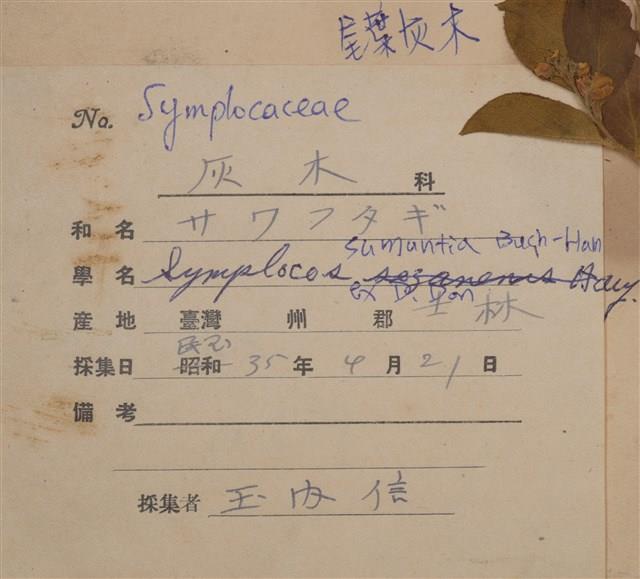 尾葉灰木
No. Symplocaceae
灰木科
和名 サワフタギ
sumuntia Buch-Ham
學名 Symplocos sozanensis Hay.
ex D. Don
産地 臺灣 州 郡 士林
民國
採集日 昭和 35年 4月 21日
備考
採集者 玉内信